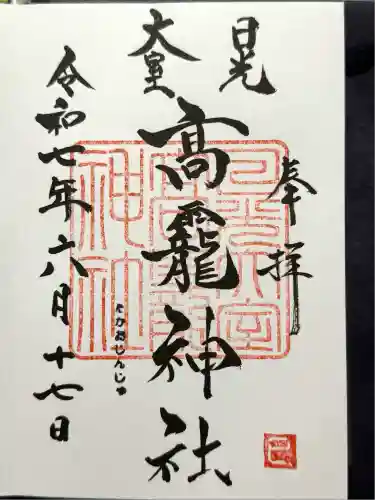 日光
奉拝
大室
高龗神社
たかおじんじゃ
令和七年六月十七日